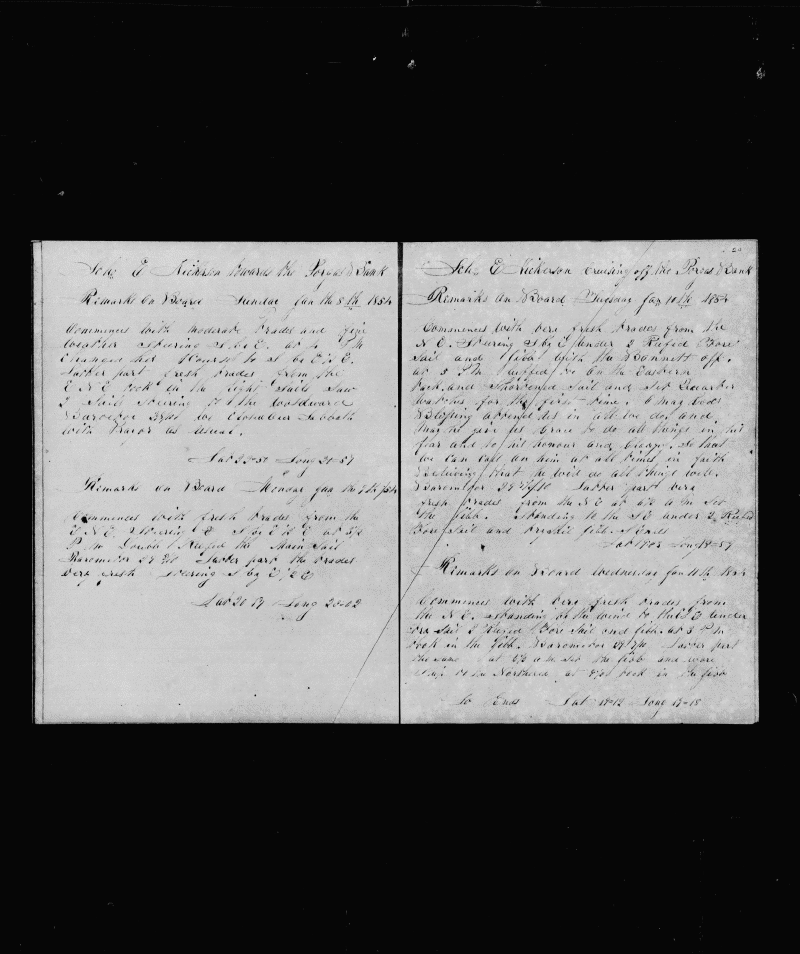 Sch E Nickerson towards the
Remarks on Board Sunday Jan the 8th 1854
Commences with moderate trades and fine
weather Steering S by E. at 4 P M
Changed her Course to S by E ½ E.
Latter part fresh trades from the
E N E took in the light Sails Saw
2 Sails Steering to the westward
Lat 22=50 Long 21=57
Remarks on Board Monday Jan the 9th 1854
Commences with fresh trades from the
P M Double Reefed the Main Sail
Barometer Latter part the trades
very fresh Steering S by E ½ E
Lat 20 Long 20=02
Sch E Nickerson Cruising off the Bank
Remarks on Board Tuesday Jan 10th 1854
Commences with very fresh trades from the
N E. Steering S by E under 2 Reefed Fore
Sail and Jibb with the Bonnett off.
at 5 P M luffed to on the Eastern
tack and Shortened Sail and Set Quarter
watches for the first time. O may Gods
Blessing attend us in all we do and
may he give us Grace to do all things in his
fear and to his honour and Glory. So that
we can Call on him at all times in faith
Believing that he will do all things well.
Barometer Latter part very
fresh trades from the N E at A M Set
the Jibb. Standing to the S E under 2 Reefed
Fore Sail and Jibb. So Ends
Long 18=59
Remarks on Board Wednesday Jan 11th 1854
Commences with very fresh trades from
the N E. Standing by the wind to the S E under
2 Reefed Fore Sail and Jibb. at 3 P M
took in the Jibb. Barometer Latter part
the Same at A M Set the Jibb and wore
Ship to the Northerd at took in the Jibb
So Ends Lat 17=12 Long 18=18